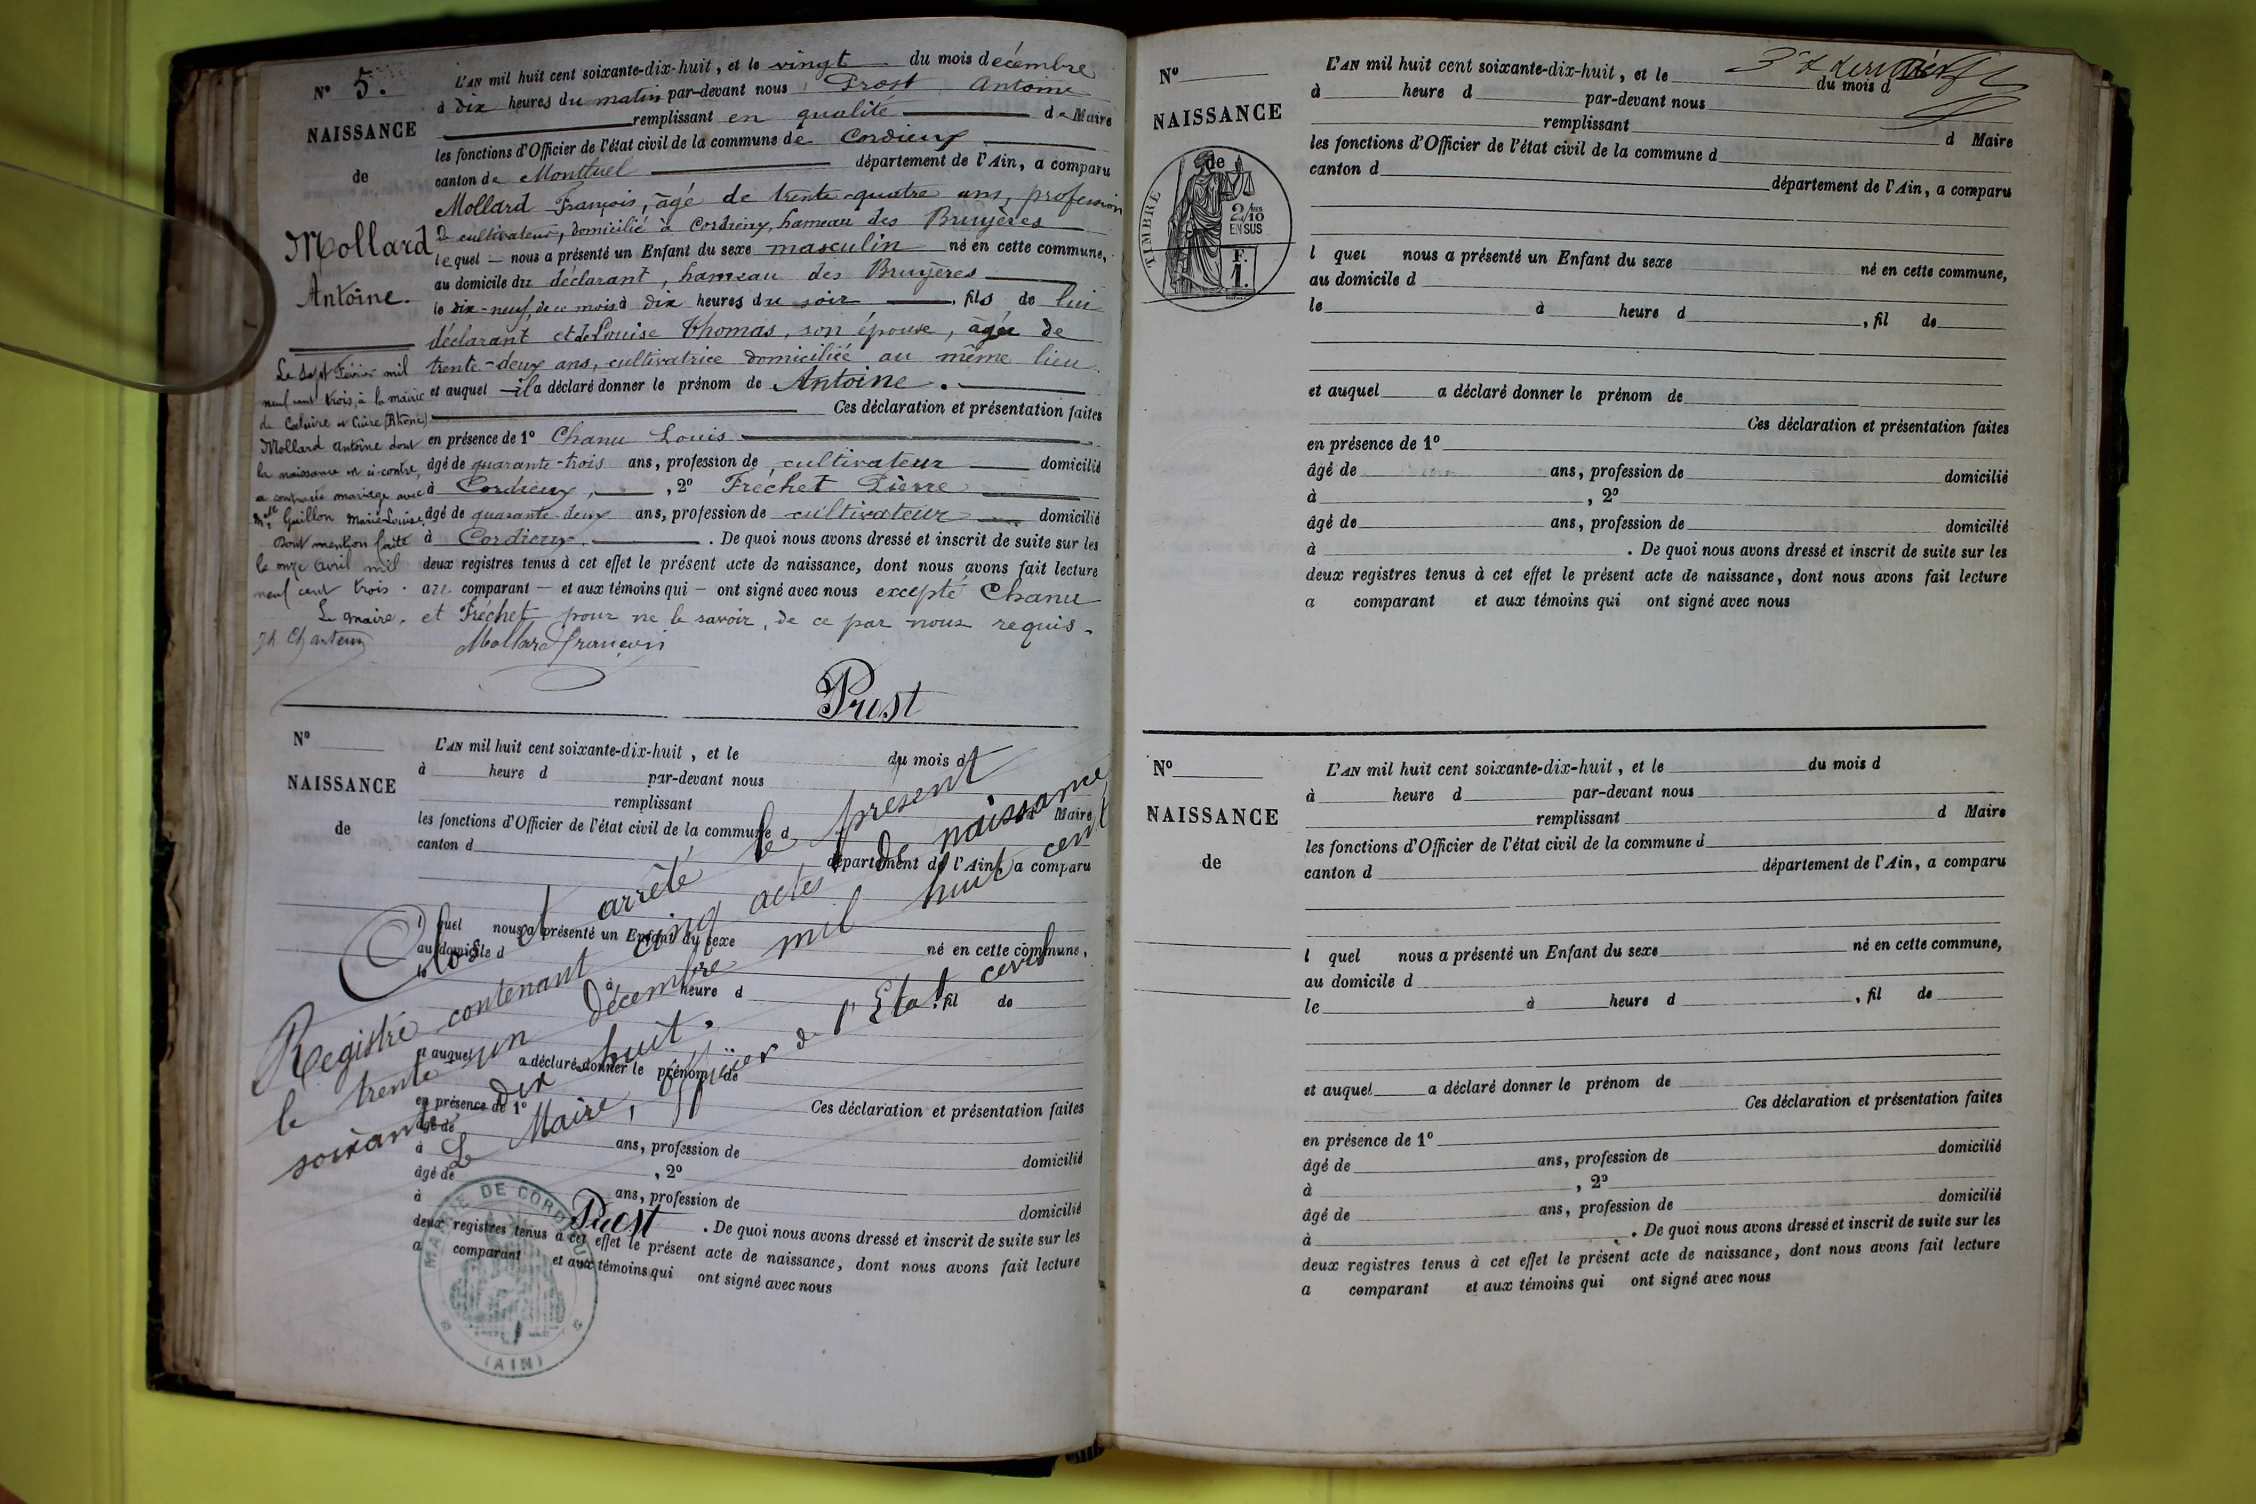 N° 5.
NAISSANCE
de
Mollard
Antoine.
L'AN mil huit cent soixante-dix-huit, et le vingt du mois décembre
à dix heures du matin par-devant nous Prost Antoine
remplissant en qualité de Maire
les fonctions d'Officier de l'état civil de la commune de Cordieux
canton de Montluel département de l'Ain, a comparu
Mollard François, âgé de trente-quatre ans, profession
de cultivateur, domicilié à Cordieux, hameau des Bruyères
lequel nous a présenté un Enfant du sexe masculin né en cette commune,
au domicile du déclarant, hameau des Bruyères
le dix-neuf, de ce mois à dix heures du soir, fils de lui
déclarant et de Louise Thomas, son épouse, âgée de
trente-deux ans, cultivatrice domiciliée au même lieu
et auquel il a déclaré donner le prénom de Antoine.
Ces déclaration et présentation faites
en présence de 1° Chanu Louis
âgé de quarante-trois ans, profession de cultivateur domicilié
à Cordieux, 2° Frechet Pierre
âgé de quarante-deux ans, profession de cultivateur domicilié
à Cordieux. De quoi nous avons dressé et inscrit de suite sur les
deux registres tenus à cet effet le présent acte de naissance, dont nous avons fait lecture
au comparant — et aux témoins qui — ont signé avec nous excepté Chanu
et Fréchet pour ne le savoir, de ce par nous requis.
Mollard françois
Prost
Le sept Février mil
neuf cent trois, à la mairie
de Caluire et Cuire (Rhône)
Mollard Antoine dont
la naissance est ci-contre,
a contracté mariage avec
Mlle Guillon Marie-Louise
Dont mention faite
le onze avril mil
neuf cent trois.
Le maire.
N°
NAISSANCE
de
L'AN mil huit cent soixante-dix-huit, et le du mois d
à heure d par-devant nous
remplissant Maire
les fonctions d'Officier de l'état civil de la commune d
canton d département de l'Ain, a comparu
l quel nous a présenté un Enfant du sexe né en cette commune,
au domicile d
le à heure d , fil de
et auquel a déclaré donner le prénom de
Ces déclaration et présentation faites
en présence de 1°
âgé de ans, profession de domicilié
à , 2°
âgé de ans, profession de domicilié
à . De quoi nous avons dressé et inscrit de suite sur les
deux registres tenus à cet effet le présent acte de naissance, dont nous avons fait lecture
a comparant et aux témoins qui ont signé avec nous
Clos et arrêté le présent
Registre contenant cinq actes de naissance
le trente-un décembre mil huit cent
soixante-dix-huit.
Le Maire, officier de l'Etat civil
Prost
MAIRIE DE CORDIEUX
(AIN)
3e & dernier
N°
NAISSANCE
de
TIMBRE
2/10
EN SUS
F.
1.
L'AN mil huit cent soixante-dix-huit, et le du mois d
à heure d par-devant nous
remplissant d Maire
les fonctions d'Officier de l'état civil de la commune d
canton d département de l'Ain, a comparu
l quel nous a présenté un Enfant du sexe né en cette commune,
au domicile d
le à heure d , fil de
et auquel a déclaré donner le prénom de
Ces déclaration et présentation faites
en présence de 1°
âgé de ans, profession de domicilié
à , 2°
âgé de ans, profession de domicilié
à . De quoi nous avons dressé et inscrit de suite sur les
deux registres tenus à cet effet le présent acte de naissance, dont nous avons fait lecture
a comparant et aux témoins qui ont signé avec nous
N°
NAISSANCE
de
L'AN mil huit cent soixante-dix-huit, et le du mois d
à heure d par-devant nous
remplissant d Maire
les fonctions d'Officier de l'état civil de la commune d
canton d département de l'Ain, a comparu
l quel nous a présenté un Enfant du sexe né en cette commune,
au domicile d
le à heure d , fil de
et auquel a déclaré donner le prénom de
Ces déclaration et présentation faites
en présence de 1°
âgé de ans, profession de domicilié
à , 2°
âgé de ans, profession de domicilié
à . De quoi nous avons dressé et inscrit de suite sur les
deux registres tenus à cet effet le présent acte de naissance, dont nous avons fait lecture
a comparant et aux témoins qui ont signé avec nous